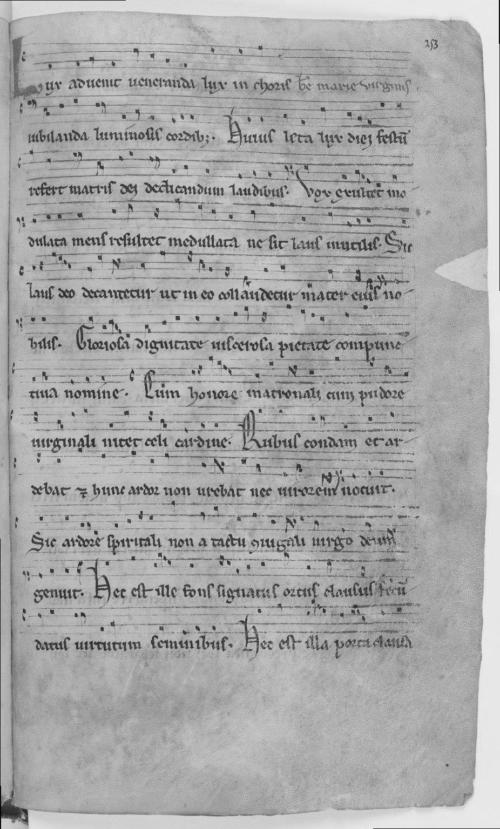 253
Lux aduenit ueneranda lux in choris be marie uirginis
iubilanda luminosis cordib;. Huius leta lux diei festū
refert matris dei dedicandum laudibus. Vox exultet mo
dulata mens resultet medullata ne sit laus inutilis. Sic
laus deo decantetur ut in eo collaudetur mater eius no
bilis. Gloriosa dignitate uiscerosa pietate compunc
tiua nomine. Cum honore matronali cum pudore
uirginali nitet celi cardine. Rubus condam et ar
debat ⁊ hunc ardor non urebat nec uirorem nocuit.
Sic ardore spiritali non a tactu 9iugali uirgo deum
genuit. Hec est ille fons signatus ortus clausus fecū
datus uirtutum seminibus. Hec est illa porta clausa